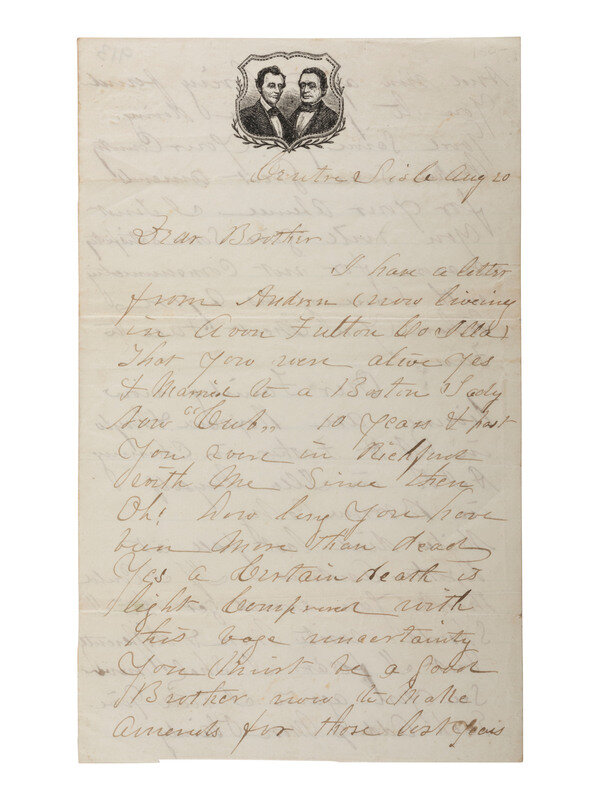 Centre Lisle Aug 20
Dear Brother
I have a letter
from Andrew (now liveing
in Avon Fulton Co Ills)
That you were alive yes
& Married to a Boston Lady
now "Cub" 10 years & past
You were in Richford
with Me Since then
Oh! how long You have
been More than dead
Yes a Certain death is
light Compared with
this vage uncertainty
You Must be a good
Brother now to Make
Amends for those lost years